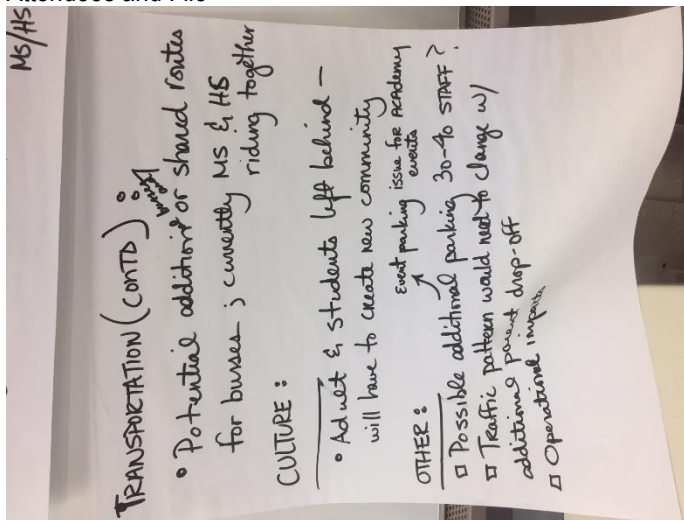 MS/HS
TRANSPORTATION (CONTD):
• Potential additional or shared routes
for busses; currently MS & HS
riding together
CULTURE:
• Adult & students left behind –
will have to create new community
Event parking issue for Academy
events
OTHER:
□ Possible additional parking 30-40 STAFF?
□ Traffic pattern would need to change w/
additional parent drop-off
□ Operational impacts